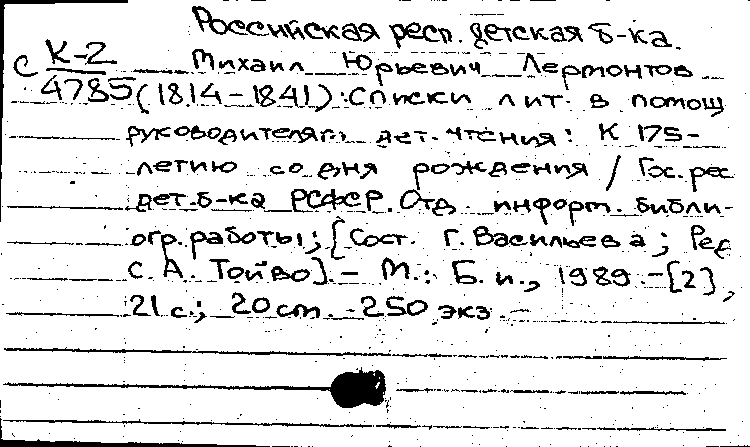 Российская респ. детская б-ка.
с К-2 Михаил Юрьевич Лермонтов
4785 (1814-1841): Списки лит. в помощ
руководителям дет. чтения: К 175-
летию со дня рождения / Гос. рес
дет. б-ка РСФСР. Отд. информ. библи-
огр. работы; [Сост. Г. Васильева; Ред
С. А. Тойво]. - М.: Б. и., 1989. - [2],
21 с.; 20 cm. - 250 экз. -